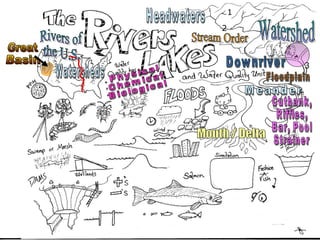 The
Rivers
Lakes
and Water Quality Unit
Headwaters
1
2
Stream Order
Watershed
Rivers of
the U.S.
Great
Basin
Watersheds
Water
Physical
Chemical
Biological
Downriver
Floodplain
Meander
FLOODS
Cutbank,
Riffles,
Bar, Pool
Strainer
Mouth / Delta
Swamp or Marsh
Wetlands
DAMS
+'s
-'s
Salmon
Simulation
Fiction
Fish